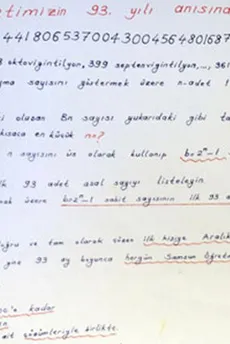 etimizin 93. yılı anısına
4418065370043004564801687
8 oktovigintilyon, 399 septenvigintilyon, ..., 361
yma sayısını göstermek üzere n-adet 1
ki olusan Bn sayısı yukarıdaki gibi ta
kısaca en küçük n=?
n sayısını üs olarak kullanıp b≥2ⁿ-1
ilk 93 adet asal sayıyı listeleyin.
mak üzere b≥2ⁿ-1 sabit sayısının ilk 93 a
doğru ve tam olarak çözen ilk kişiye Aralık
yine 93 ay boyunca hergün Samsun Öğretm
e kadar
çözümleriyle birlikte